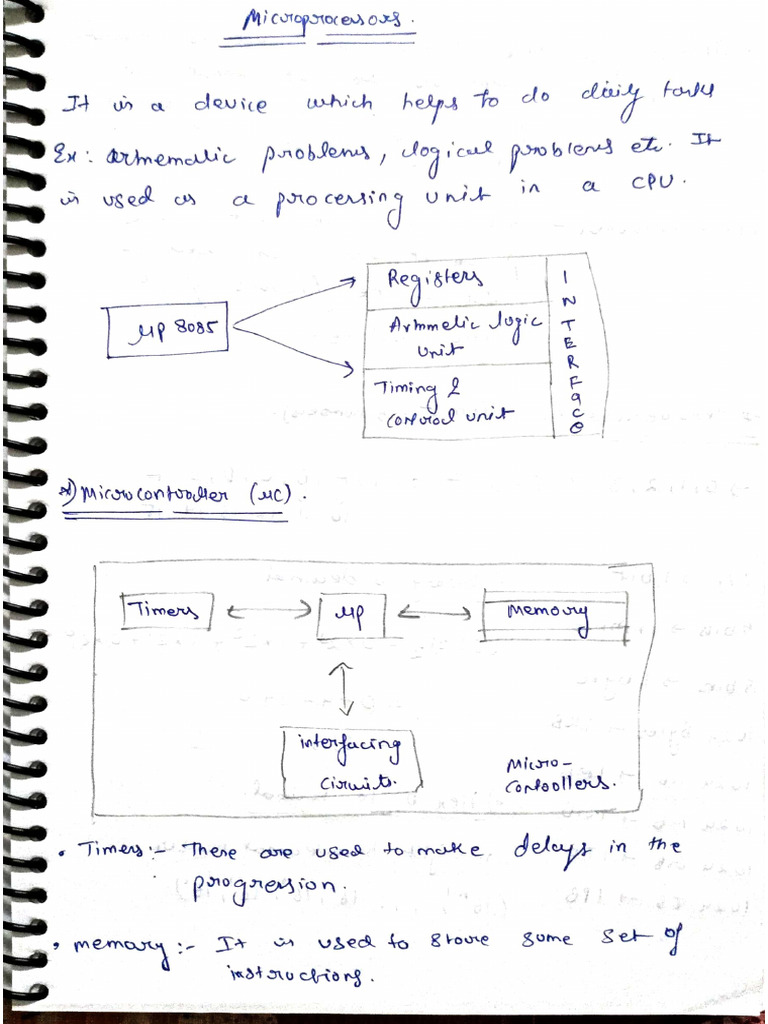 Microprocessors.
It is a device which helps to do daily tasks
Ex: armematic problems, logical problems etc. It
is used as a processing unit in a CPU.
μp 8085
Registers
Arhmelic logic
unit
Timing &
control unit
INTERFACE
*) Microcontroller (μc).
Timers
μp
Memory
interfacing
circuits.
Micro-
controllers.
• Timers:- These are used to make delays in the
progression.
• memory:- It is used to store some set of
instructions.